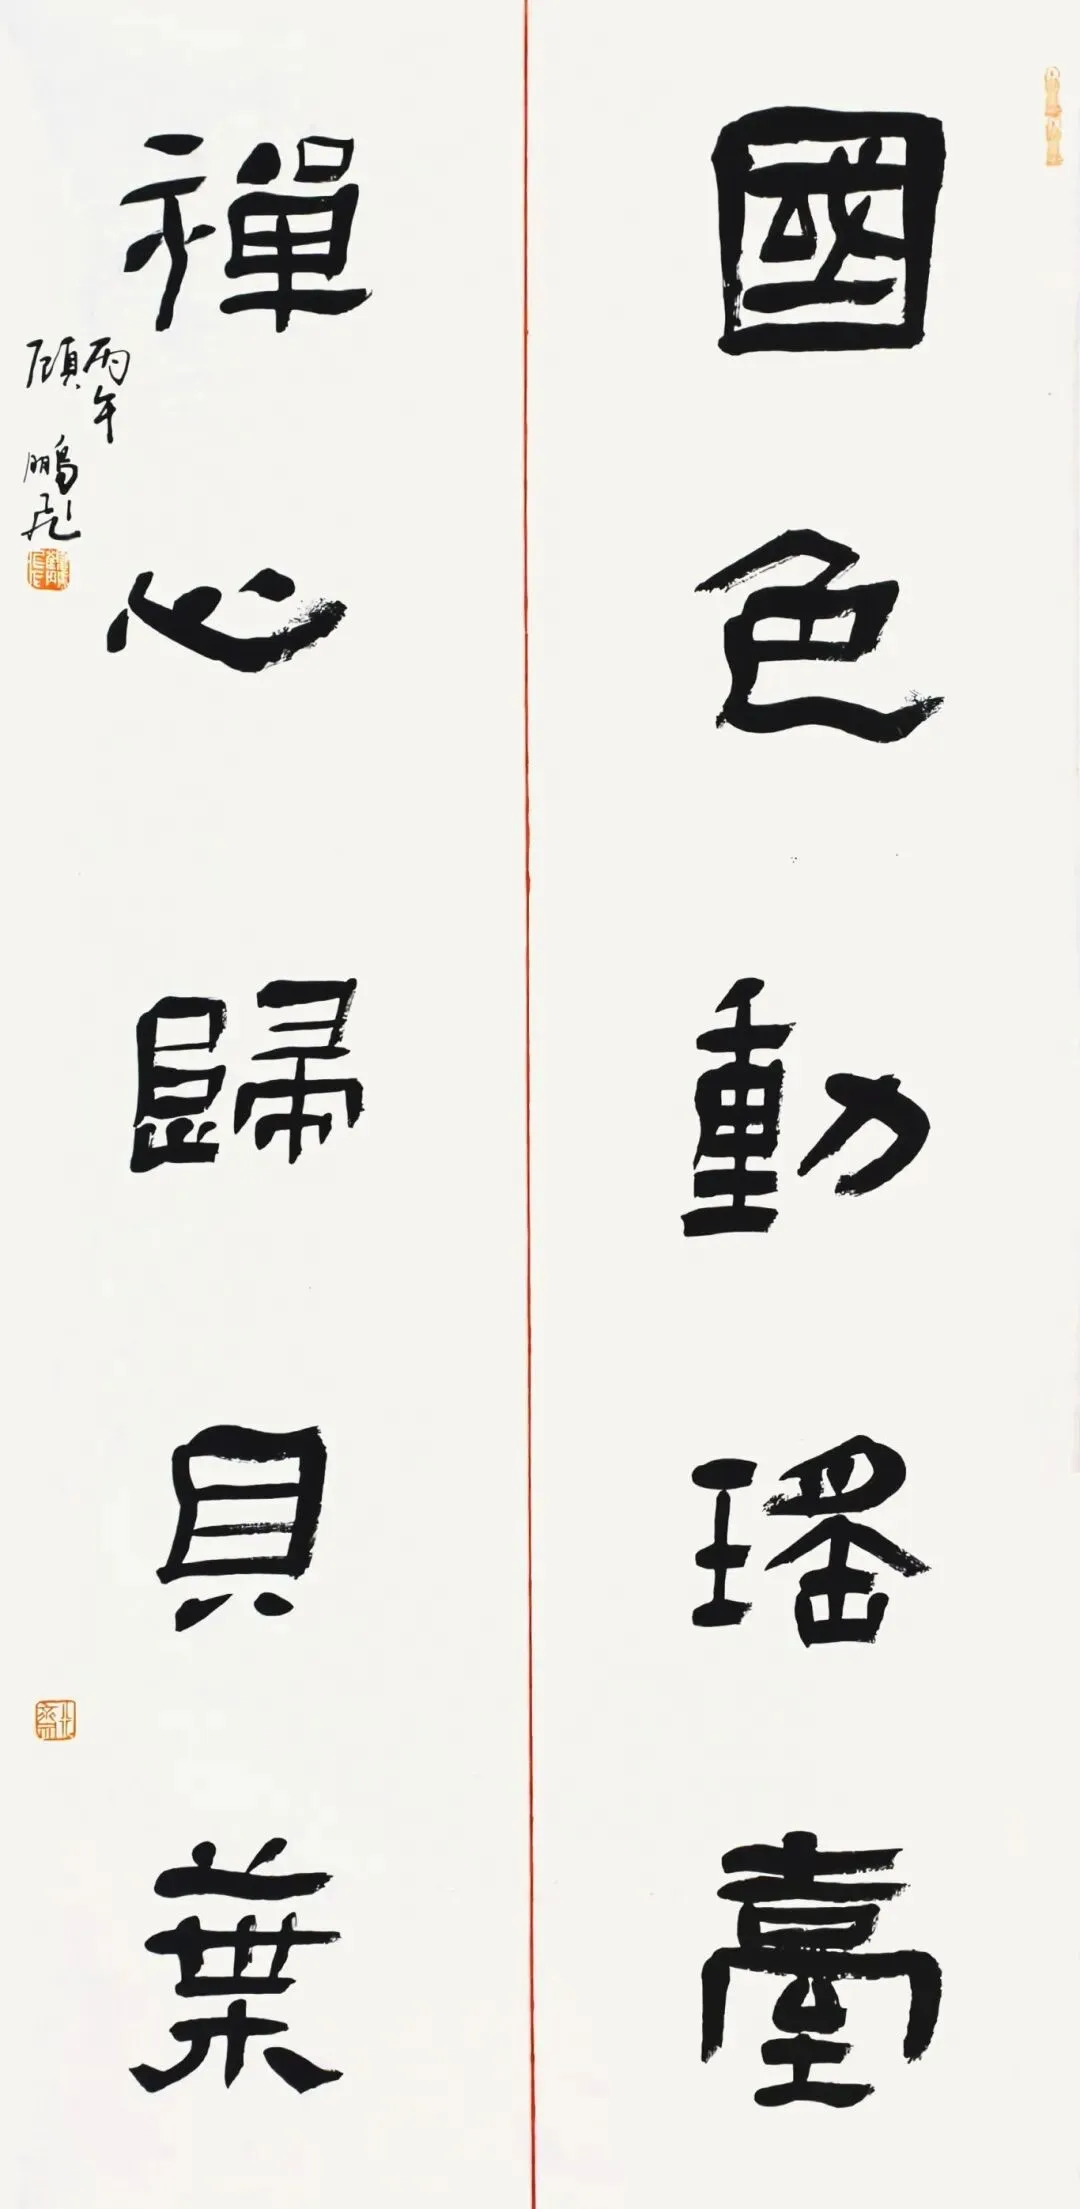 國色動瑤臺
禪心歸貝葉
丙午
顧鵬飛